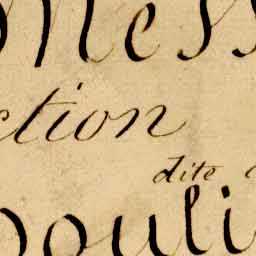 ness
ction
dite
pouli